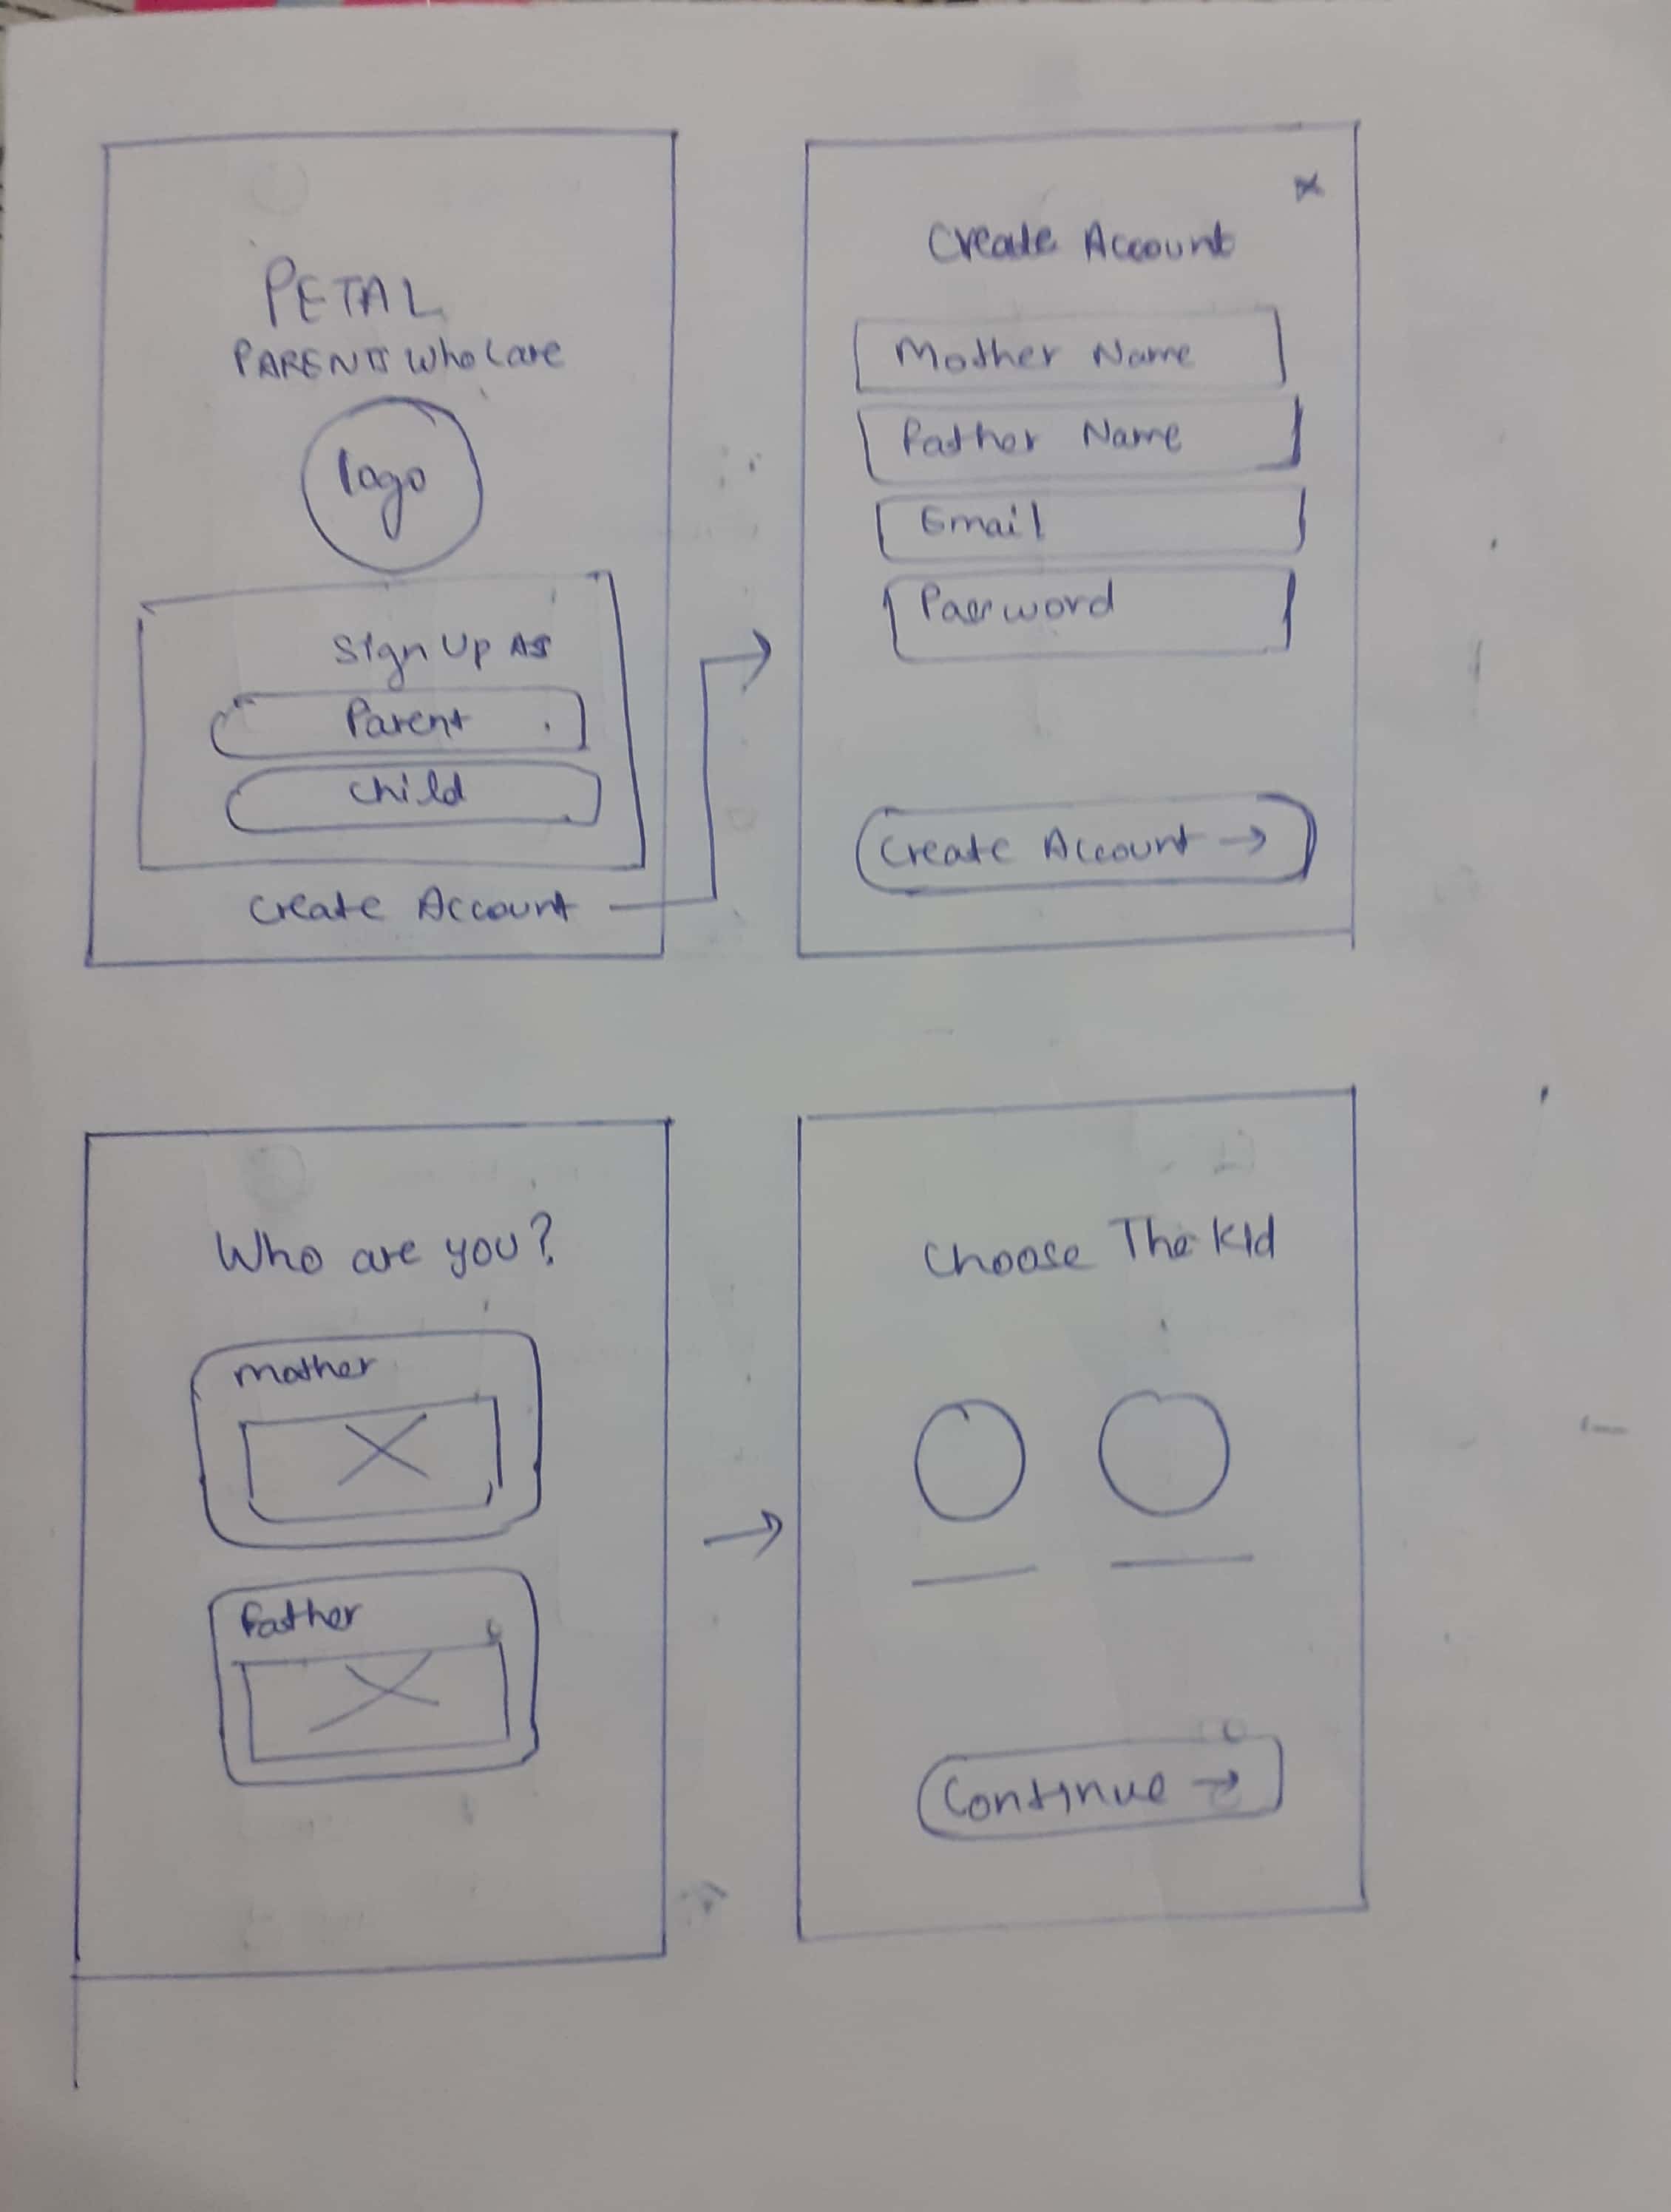 PETAL
PARENTS who Care
logo
Sign Up As
Parent
child
Create Account
Create Account
Mother Name
Father Name
Email
Password
Create Account →
Who are you?
mother
Father
Choose The Kid
Continue →